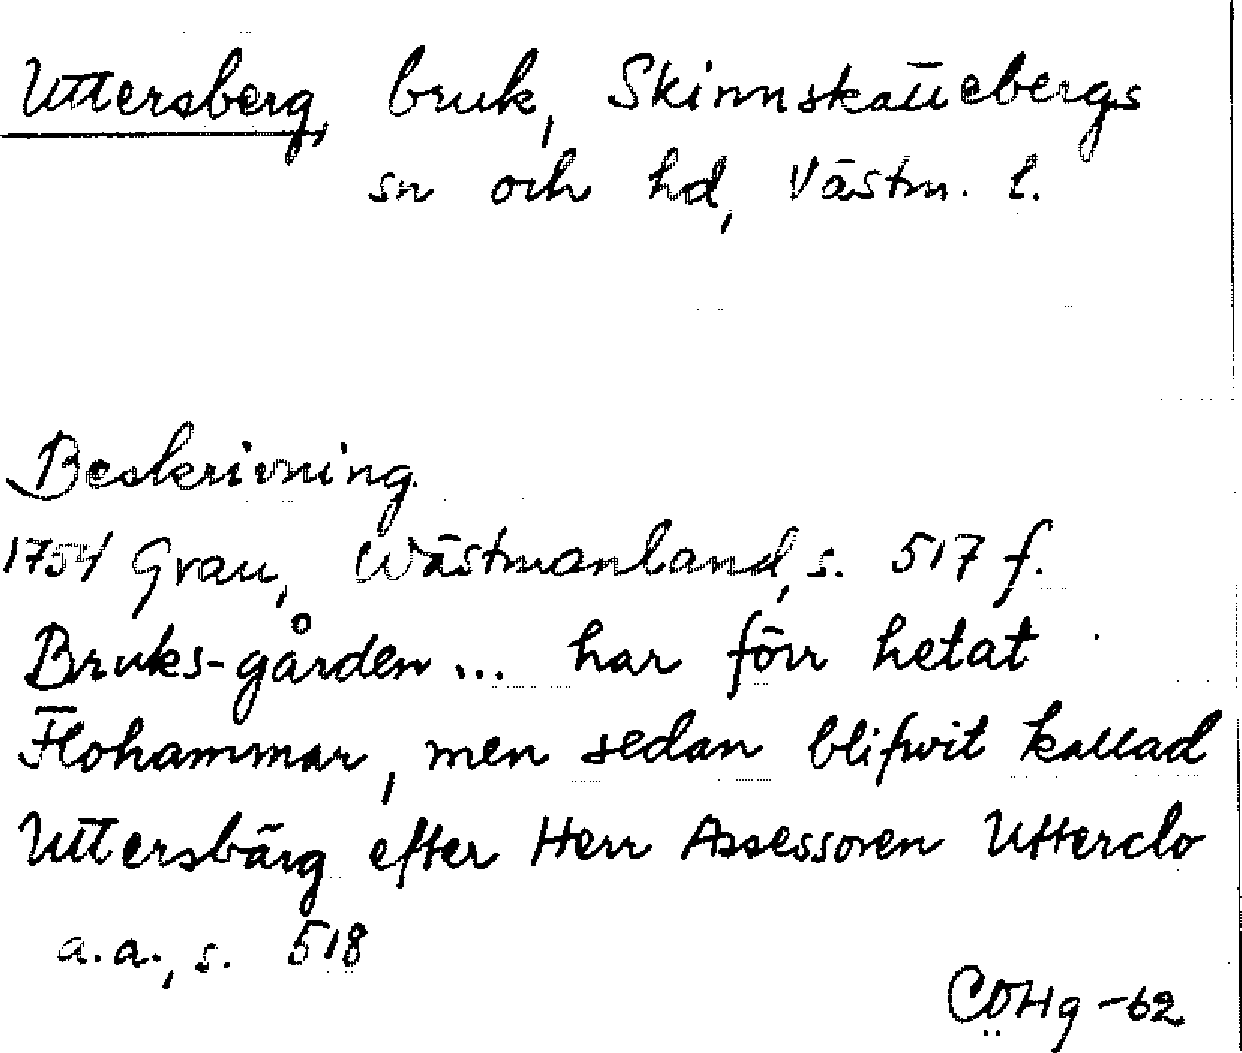 Uttersberg, bruk, Skinnskattebergs
sn och hd, Västm. l.
Beskrivning
1754 Grau, Wästmanland, s. 517 f.
Bruks-gården ... har förr hetat
Flohammar, men sedan blifwit kallad
Uttersbärg efter Herr Assessoren Utterclo
a.a., s. 518
CÖHg -62